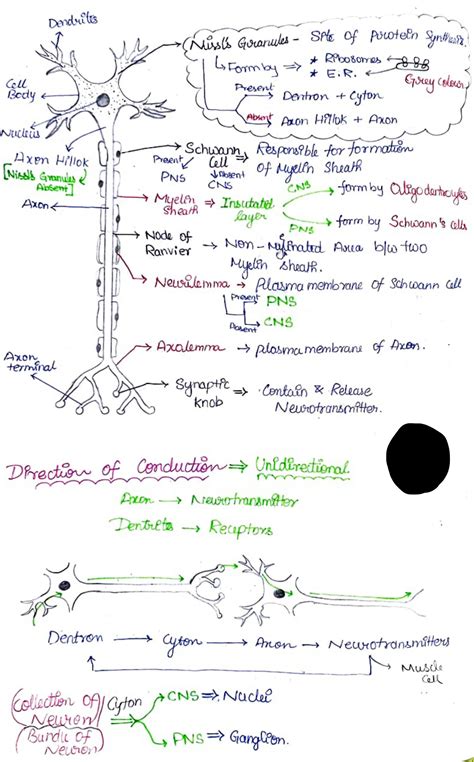 Dendrites
Nissl's Granules - Site of Protein Synthesis.
Form by ⇒ * Ribosomes
* E.R.
Grey colour
Present
→ Dentron + Cyton
Absent
→ Axon Hillok + Axon
Cell Body
Nucleus
Axon Hillok
[Nissl's Granules Absent]
Axon
Schwann Cell → Responsible for formation of Myelin Sheath
Present PNS
Absent CNS
Myelin sheath ⇒ Insulated layer
CNS → form by Oligodendrocytes
PNS → form by Schwann's cells
Node of Ranvier → Non-Mylinated Area b/w two Myelin sheath.
Neurilemma → plasma membrane of Schwann Cell
Present → PNS
Absent → CNS
Axolemma → plasma membrane of Axon.
Axon terminal
Synaptic knob → Contain & Release Neurotransmitter.
Direction of Conduction ⇒ Unidirectional
Axon → Neurotransmitter
Dentrites → Receptors
Dentron → Cyton → Axon → Neurotransmitters
Muscle Cell
(Collection of Neuron) Cyton ⇒ CNS ⇒ Nuclei
(Bundle of Neuron) PNS ⇒ Ganglion.